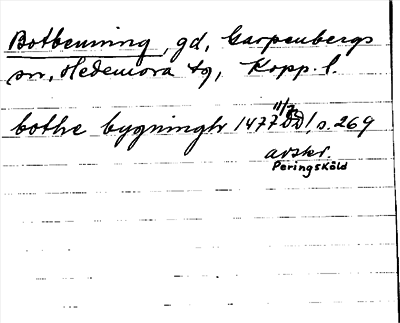 Botbenning, gd, Garpenbergs
sn, Hedemora tg, Kopp. l.
bothe bygninghr 1477 11/7 DD1, s. 269
avskr.
Peringskiöld